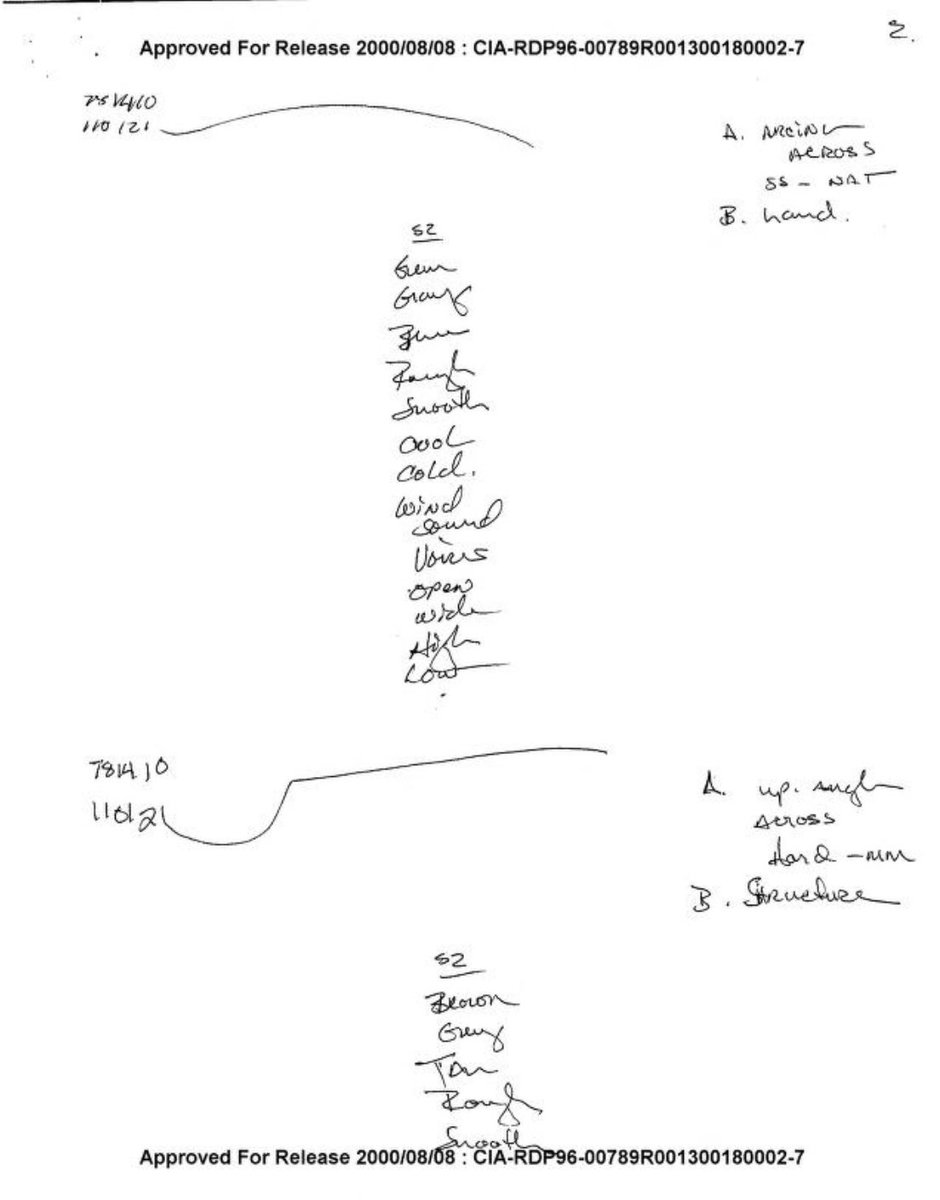 2.
Approved For Release 2000/08/08 : CIA-RDP96-00789R001300180002-7
110 121
A. ARCING
ACROSS
SS - NAT
B. hand.
S2
Green
Gray
Rough
Smooth
Cool
Cold.
Wind
Sound
Voices
open
wide
High
Low
781410
110121
A. up. angle
Across
Hard -
B. Structure
S2
Brown
Grey
Tan
Rough
Smooth
Approved For Release 2000/08/08 : CIA-RDP96-00789R001300180002-7